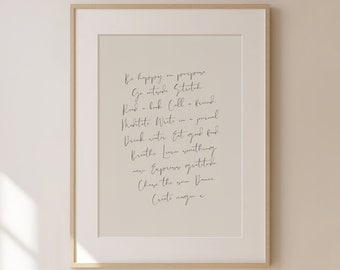 Be happy on purpose
Go outside Stretch
Read a book Call a friend
Meditate Write in a journal
Drink water Eat good food
Breathe Learn something
new Express gratitude
Chase the sun Dance
Create magic